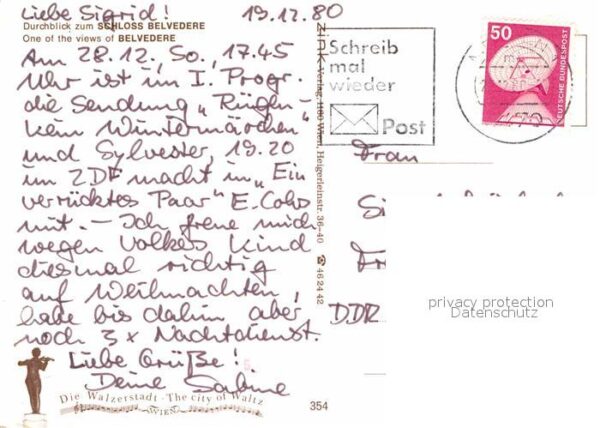 Liebe Sigrid! 19.12.80
Durchblick zum SCHLOSS BELVEDERE
One of the views of BELVEDERE
Am 28.12., So., 17.45
Uhr ist im I. Progr.
die Sendung „Rügen –
kein Wintermärchen"
und Sylvester, 19.20
im ZDF macht in „Ein
verrücktes Paar" E. Cohs
mit. – Ich freue mich
wegen Volkes Kind
diesmal richtig
auf Weihnachten,
habe bis dahin aber
noch 3 x Nachtdienst.
Liebe Grüße!
Deine Sabine
Die Walzerstadt · The city of Waltz
WIEN
354
Verlag, 1100 Wien, Heigerleinstr. 36-40 ☎ 46 24 42
Schreib
mal
wieder
Post
50
DEUTSCHE BUNDESPOST
Frau
DDR
privacy protection
Datenschutz